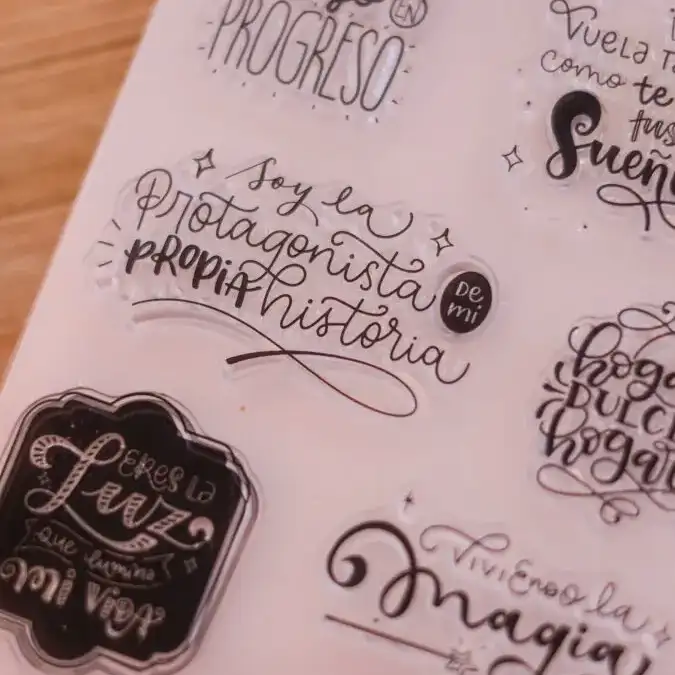 EN
PROGRESO
VUELA
como te
tus
Soy la
Protagonista
DE
mi
PROPIA historia
DULCE
hogar
ERES la
Luz
que ilumina
mi vida
Viviendo la
magia